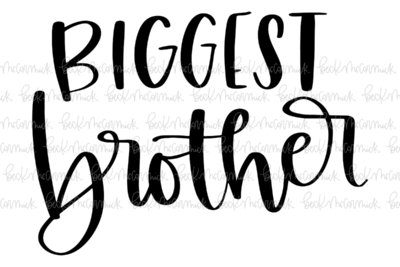 BIGGEST
brother